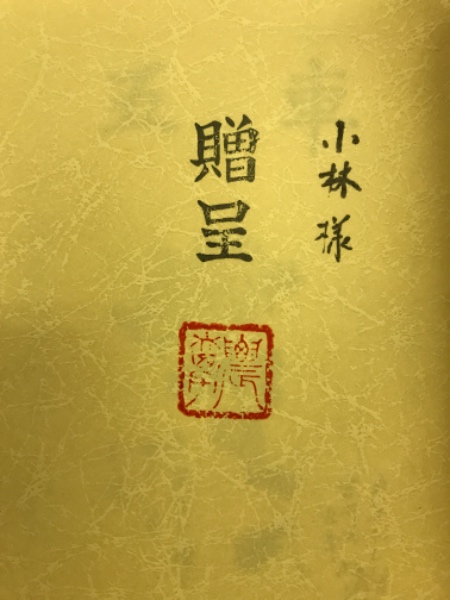 小林様
贈呈